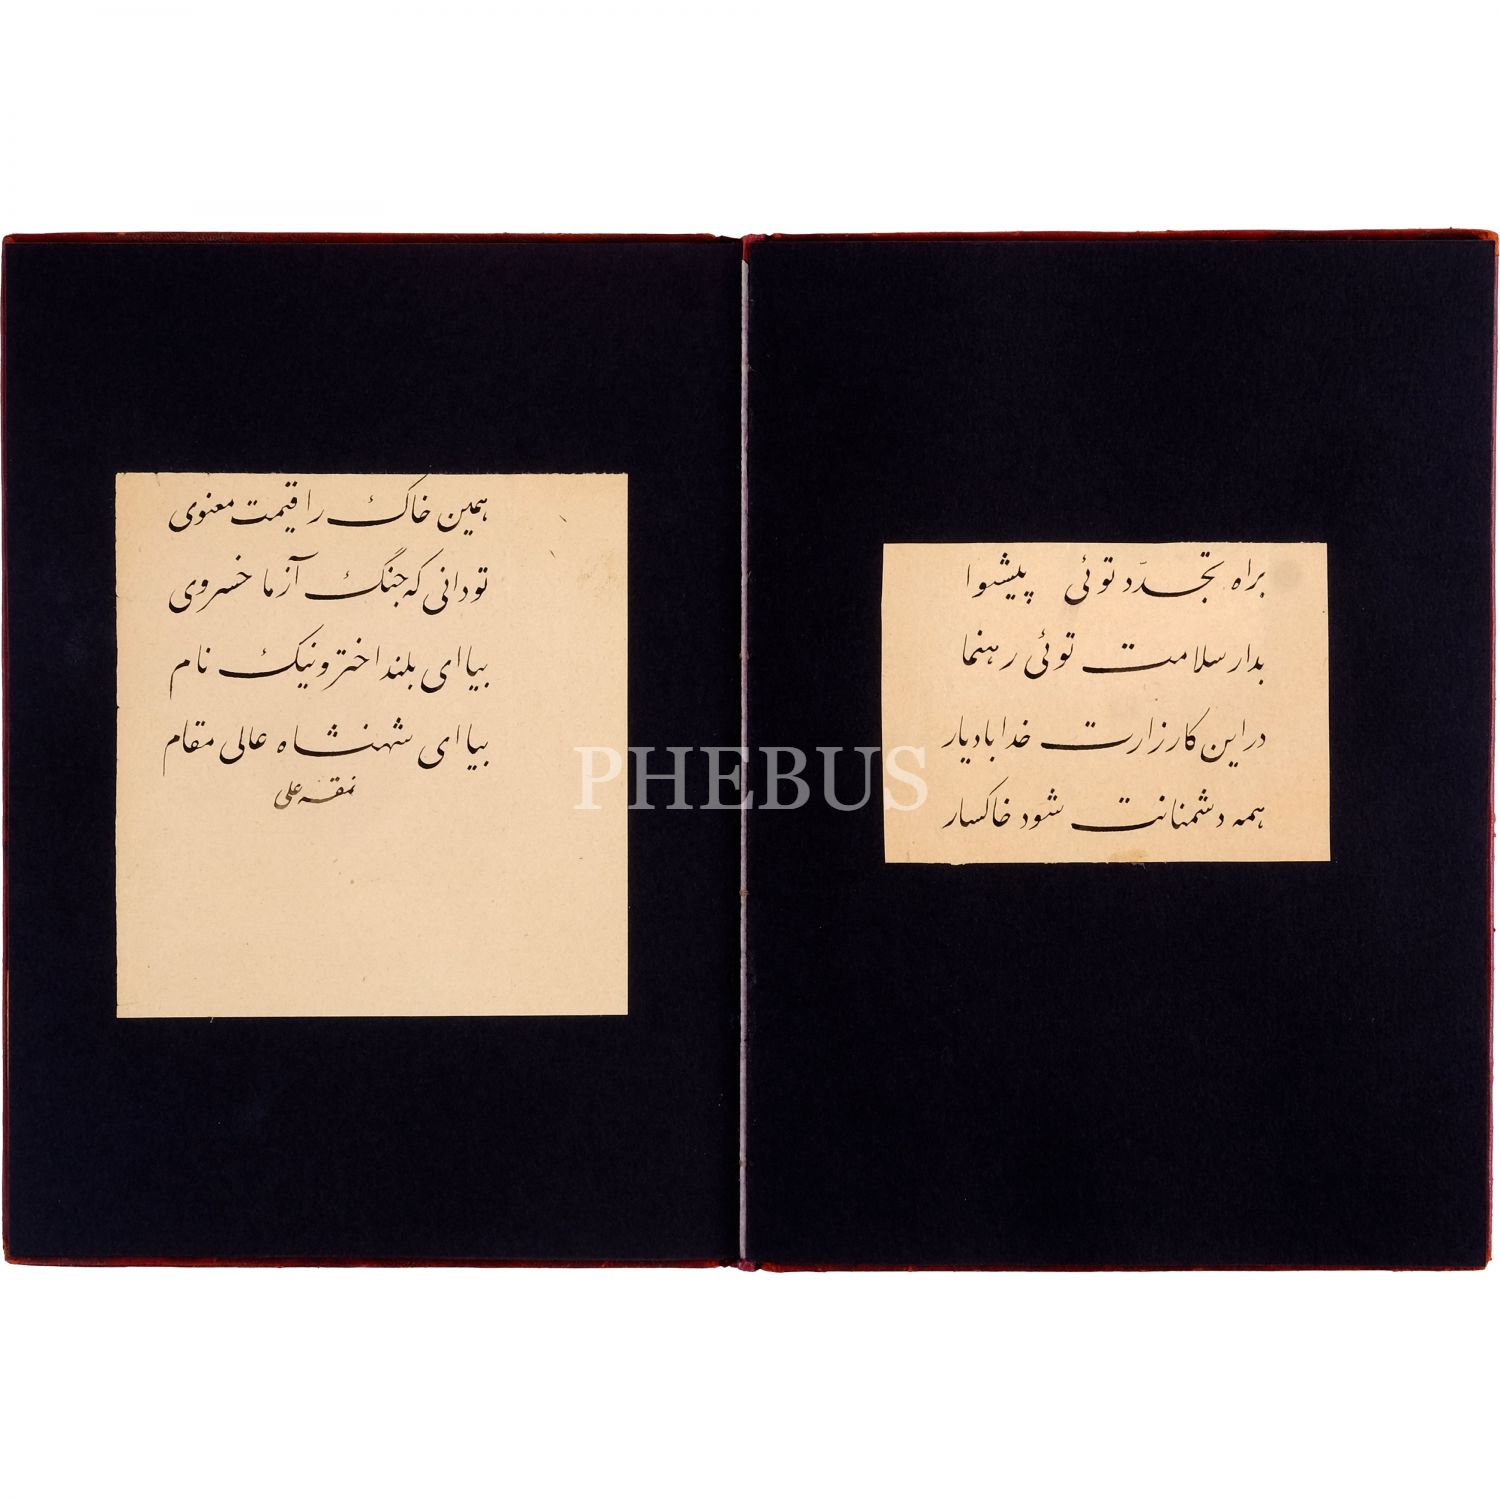 براه تجدّد توئی پیشوا
بدار سلامت توئی رهنما
در این کارزارت خدا باد یار
همه دشمنانت شود خاکسار
همین خاک را قیمت معنوی
تو دانی که جنگ آزما خسروی
بیا ای بلند اختر و نیک نام
بیا ای شهنشاه عالی مقام
نمقه علی
PHEBUS